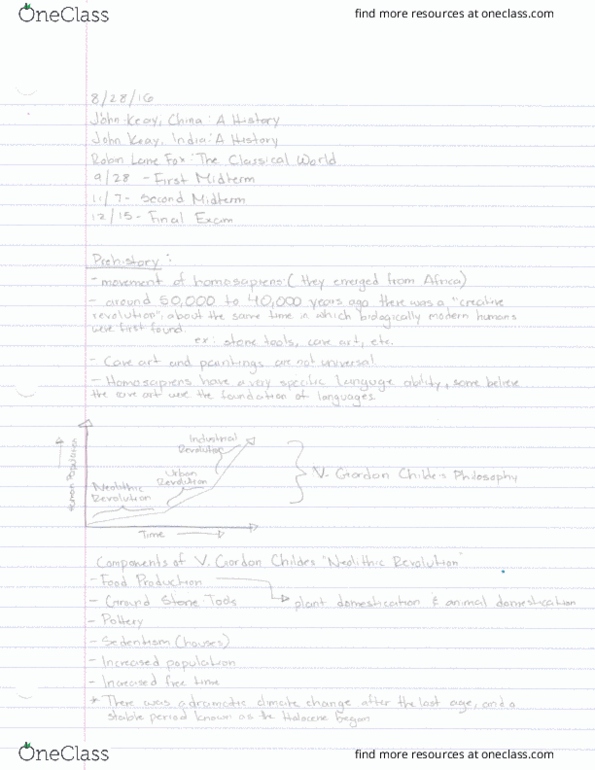 OneClass
find more resources at oneclass.com
8/28/16
John Keay, China: A History
John Keay, India: A History
Robin Lane Fox: The Classical World
9/28 - First Midterm
11/7 - Second Midterm
12/15 - Final Exam
Prehistory:
- movement of homosapiens: (they emerged from Africa)
- around 50,000 to 40,000 years ago there was a "creative
revolution", about the same time in which biologically modern humans
were first found.
ex: stone tools, cave art, etc.
- Cave art and paintings are not universal
- Homosapiens have a very specific language ability, some believe
the cave art were the foundation of languages
Human Population
Industrial
Revolution
Urban
Revolution
Neolithic
Revolution
V. Gordon Childe's Philosophy
Time
Components of V. Gordon Childes "Neolithic Revolution"
- Food Production
- Ground Stone Tools
plant domestication & animal domestication
- Pottery
- Sedentism (houses)
- Increased population
- Increased free time
* There was a dramatic climate change after the last age, and a
stable period known as the Holocene began
OneClass
find more resources at oneclass.com